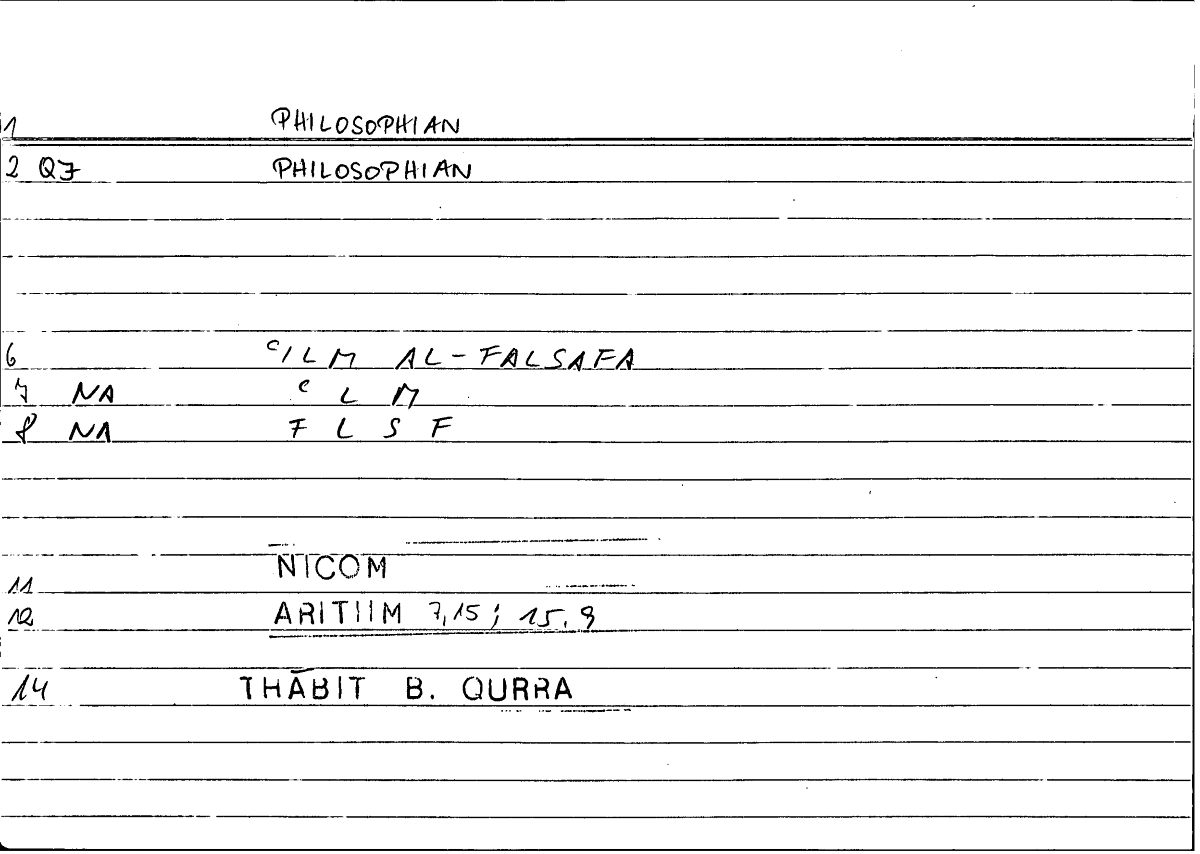 1 PHILOSOPHIAN
2 QJ PHILOSOPHIAN
6 ᶜILM AL-FALSAFA
7 NA ᶜ L M
8 NA F L S F
NICOM
11
12 ARITHM 7,15; 15.9
14 THĀBIT B. QURRA